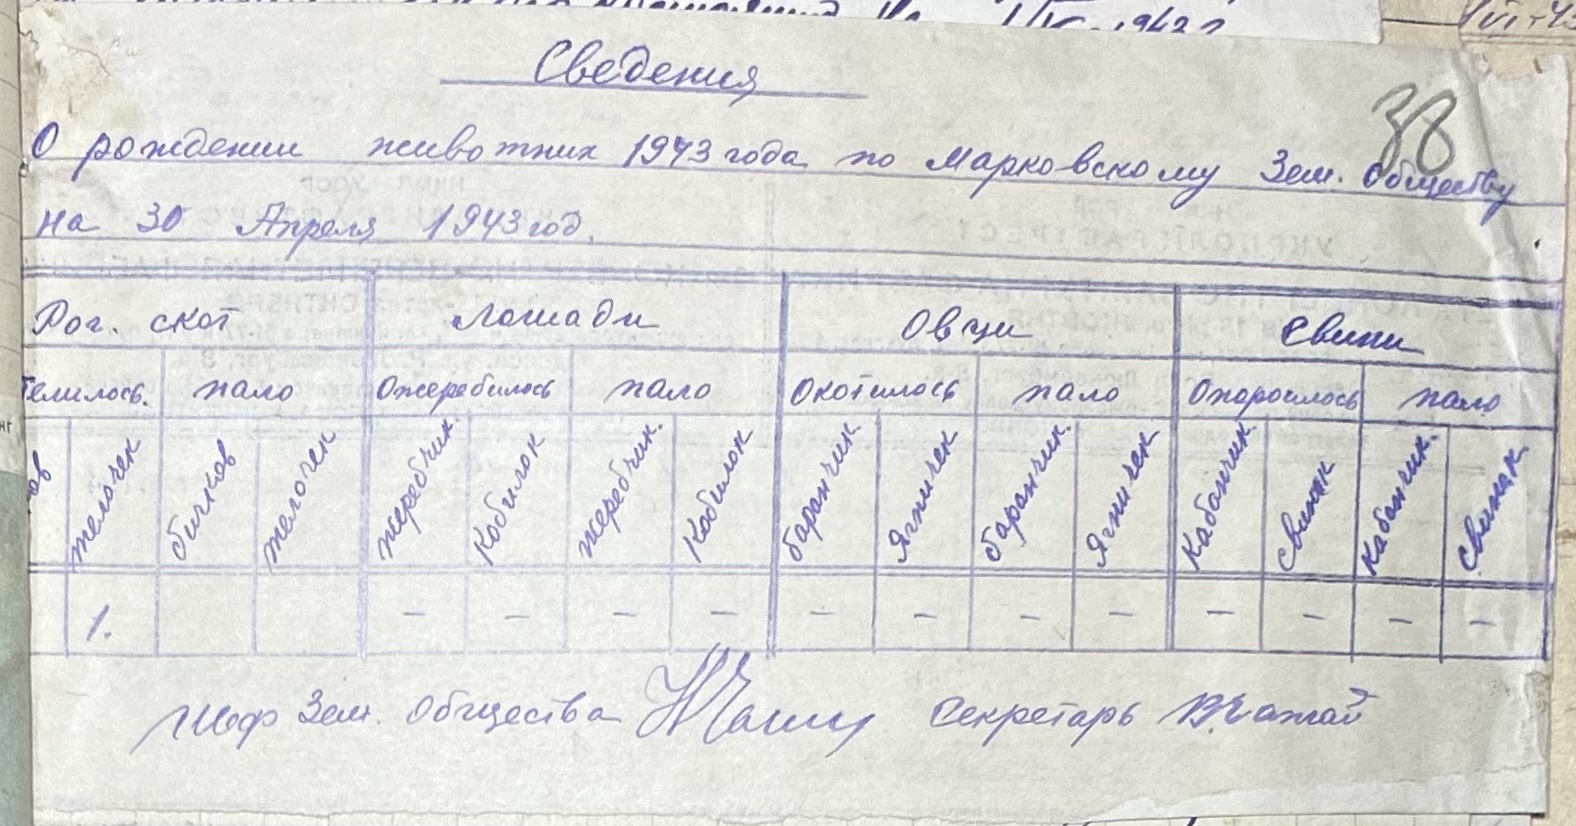 Сведения
38
О рождении животних 1943 года по Марковскому Зем. Обществу
на 30 Апреля 1943 год.
Рог. скот Лошади Овци Свини
телилось. пало Ожеребилось пало Окотилось пало Опоросилось пало
ов телочек бичков телочек жеребчик. Кобилок жеребчик. Кобилок баранчик. Ягничек баранчик. Ягничек Кабанчик. свинок Кабанчик. свинок
1. – – – – – – – – – – – –
Шеф Зем. Общества Секретарь